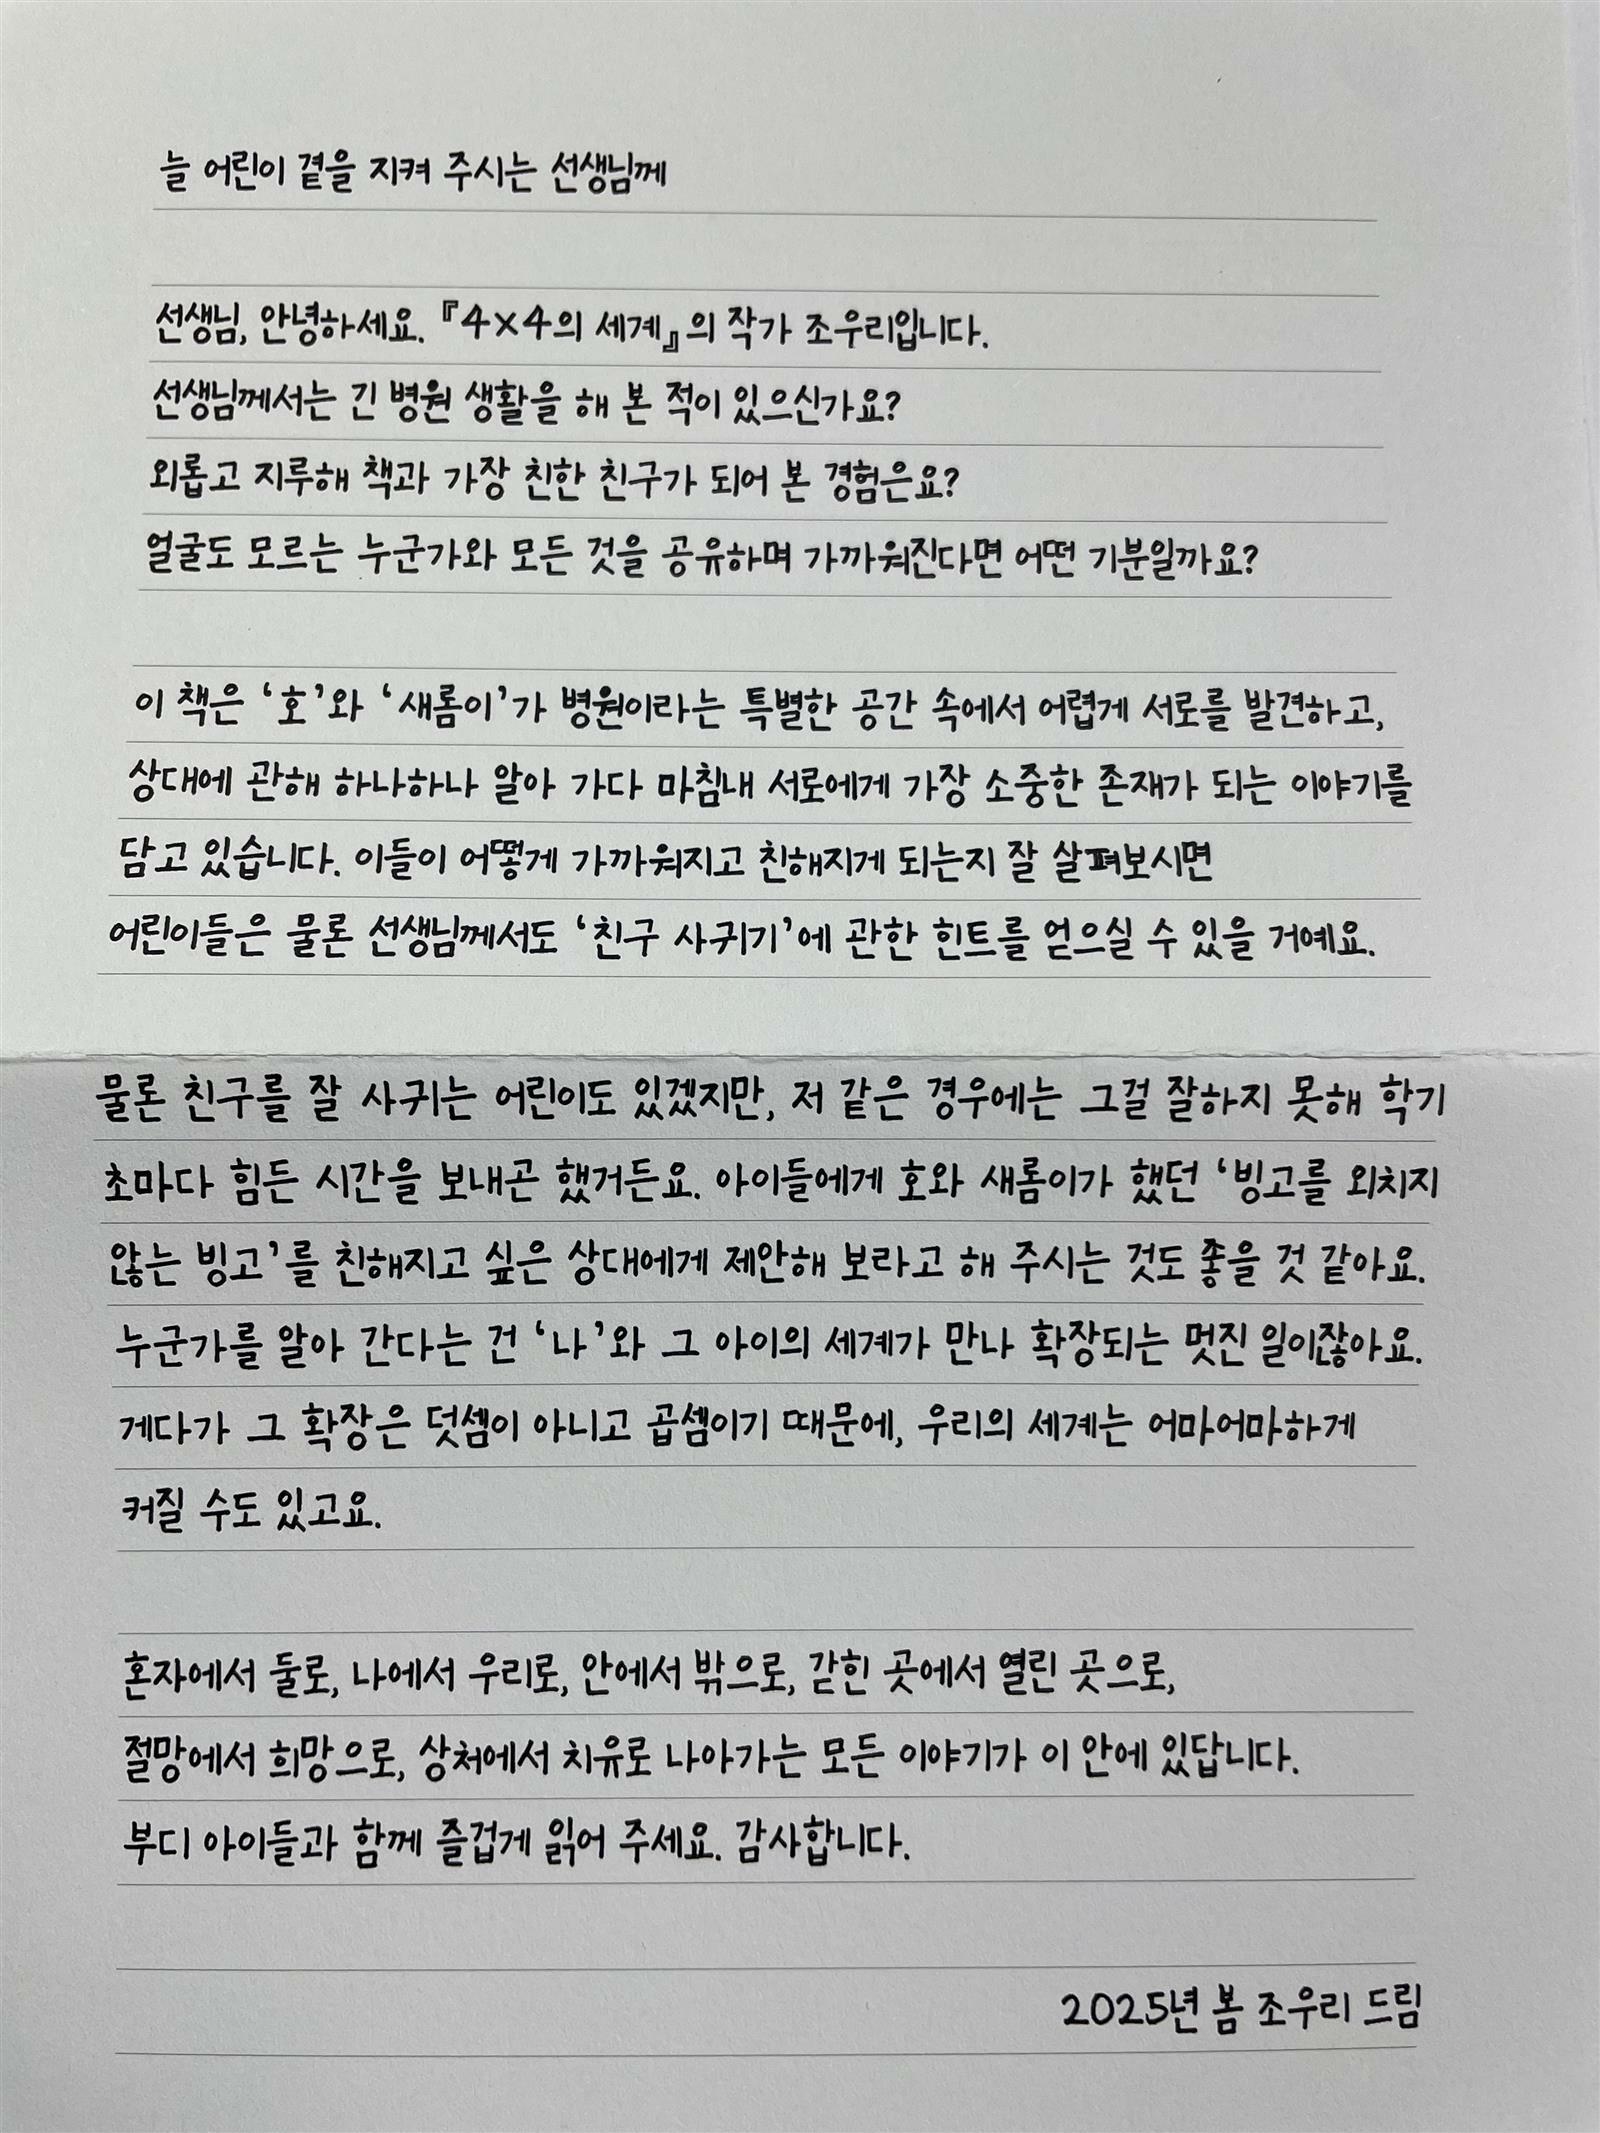 늘 어린이 곁을 지켜 주시는 선생님께
선생님, 안녕하세요. 『4×4의 세계』의 작가 조우리입니다.
선생님께서는 긴 병원 생활을 해 본 적이 있으신가요?
외롭고 지루해 책과 가장 친한 친구가 되어 본 경험은요?
얼굴도 모르는 누군가와 모든 것을 공유하며 가까워진다면 어떤 기분일까요?
이 책은 ‘호’와 ‘새롬이’가 병원이라는 특별한 공간 속에서 어렵게 서로를 발견하고,
상대에 관해 하나하나 알아 가다 마침내 서로에게 가장 소중한 존재가 되는 이야기를
담고 있습니다. 이들이 어떻게 가까워지고 친해지게 되는지 잘 살펴보시면
어린이들은 물론 선생님께서도 ‘친구 사귀기’에 관한 힌트를 얻으실 수 있을 거예요.
물론 친구를 잘 사귀는 어린이도 있겠지만, 저 같은 경우에는 그걸 잘하지 못해 학기
초마다 힘든 시간을 보내곤 했거든요. 아이들에게 호와 새롬이가 했던 ‘빙고를 외치지
않는 빙고’를 친해지고 싶은 상대에게 제안해 보라고 해 주시는 것도 좋을 것 같아요.
누군가를 알아 간다는 건 ‘나’와 그 아이의 세계가 만나 확장되는 멋진 일이잖아요.
게다가 그 확장은 덧셈이 아니고 곱셈이기 때문에, 우리의 세계는 어마어마하게
커질 수도 있고요.
혼자에서 둘로, 나에서 우리로, 안에서 밖으로, 갇힌 곳에서 열린 곳으로,
절망에서 희망으로, 상처에서 치유로 나아가는 모든 이야기가 이 안에 있답니다.
부디 아이들과 함께 즐겁게 읽어 주세요. 감사합니다.
2025년 봄 조우리 드림